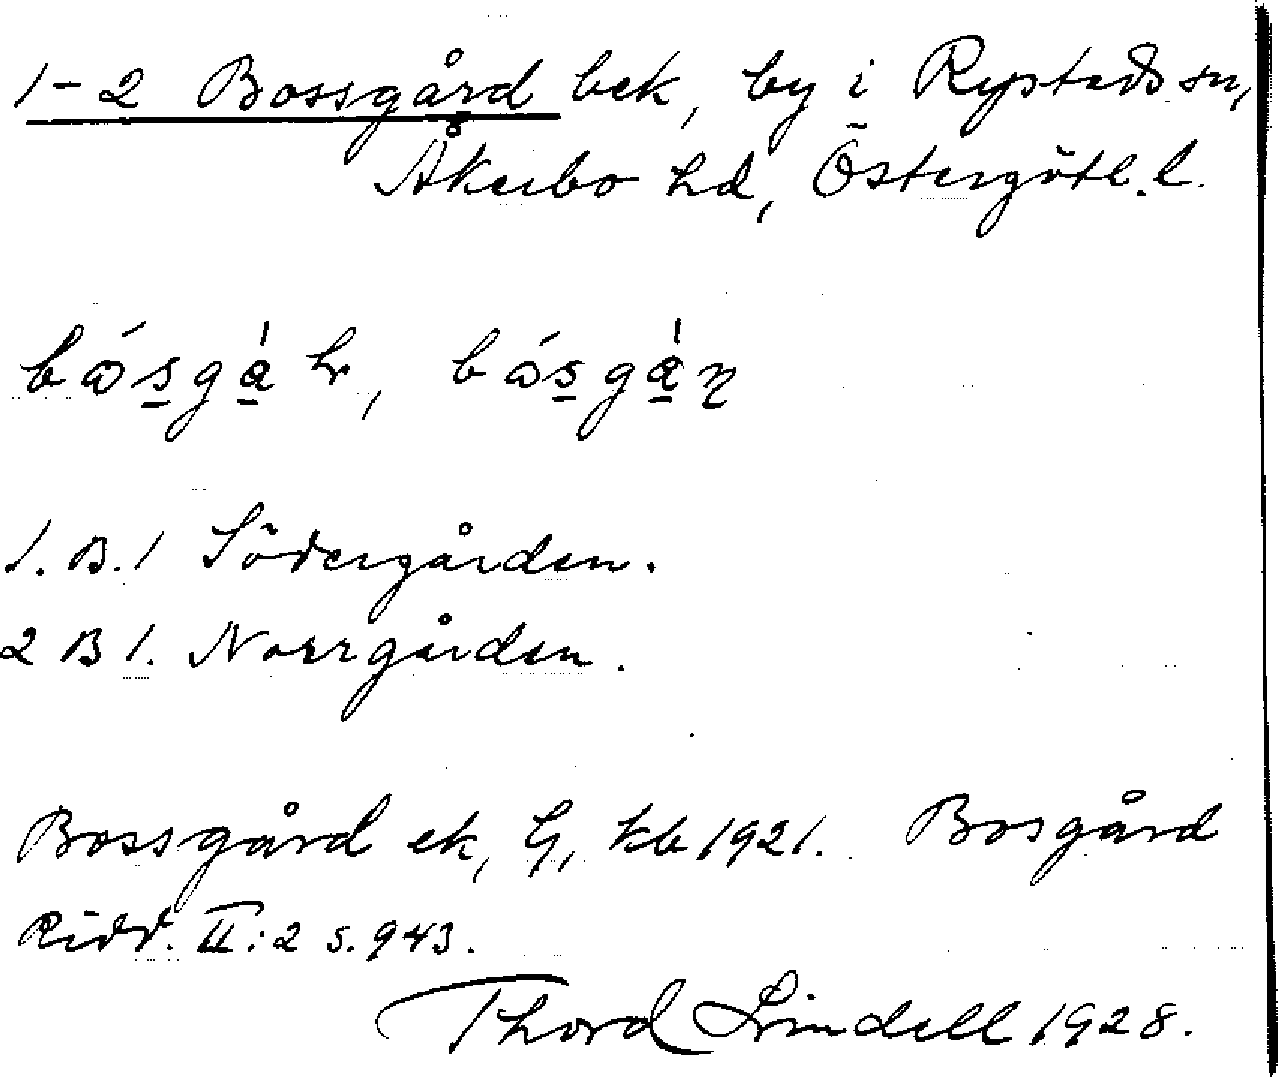 1-2 Bossgård bek, by i Rystads sn,
Åkerbo hd, Östergötl. l.
1. B. 1 Södergården.
2 B 1. Norrgården.
Bossgård ek, G, kb 1921. Bosgård
Ridd. II:2 s. 943.
Thord Lindell 1928.